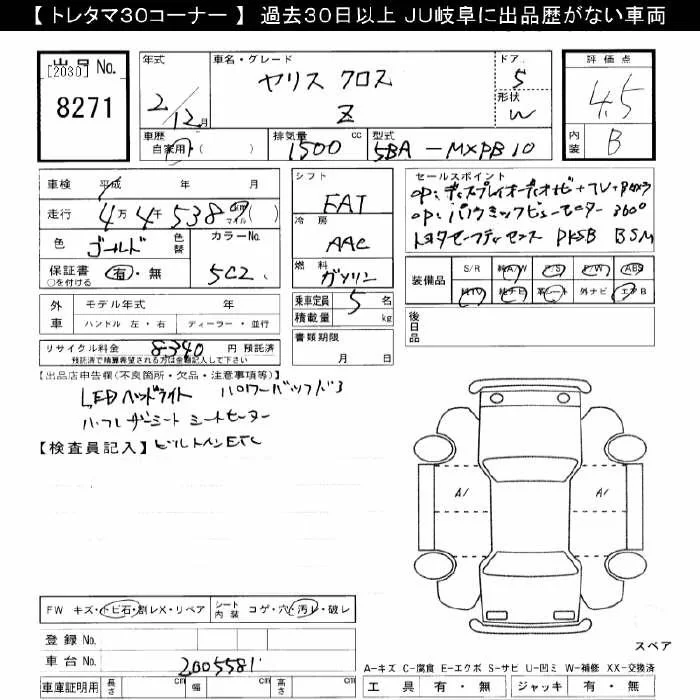 【 トレタマ30コーナー 】 過去30日以上 JU岐阜に出品歴がない車両
出品 No.
[2030]
8271
年式
2/12月
車名・グレード
ヤリス クロス
Z
ドア
5
形状
W
評価点
4.5
内装
B
車歴
自家用・( )
排気量
1500 cc
型式
5BA - MXPB10
車検 平成 年 月
走行 4万4千538 km マイル ( )
色 ゴールド 色替
カラーNo. 5C2
保証書 有・無
○を付ける
シフト FAT
冷房 AAC
燃料 ガソリン
乗車定員 5 名
積載量 kg
書類期限
月 日
セールスポイント
OP:ディスプレイオーディオナビ+TV+Pカメラ
OP:パノラミックビューモニター 360°
トヨタセーフティセンス PKSB BSM
装備品
S/R 純A/W P/S P/W ABS
純TV 純ナビ 革シート 外ナビ エアB
後日品
外車
モデル年式 年
ハンドル 左・右 ディーラー・並行
リサイクル料金 8340 円 預託済
預託済で精算希望される方は金額記入して下さい
【出品店申告欄(不良箇所・欠品・注意事項等)】
LEDヘッドライト パワーバックドア
ハーフレザーシート シートヒーター
【検査員記入】 ビルトインETC
A1 A1
FW キズ・トビ石・割レX・リペア
シート内装 コゲ・穴・汚レ・破レ
登録 No.
車台 No. 2005581
スペア
A-キズ C-腐食 E-エクボ S-サビ U-凹ミ W-補修 XX-交換済
車庫証明用 長さ cm 幅 cm 高さ cm
工具 有・無 ジャッキ 有・無